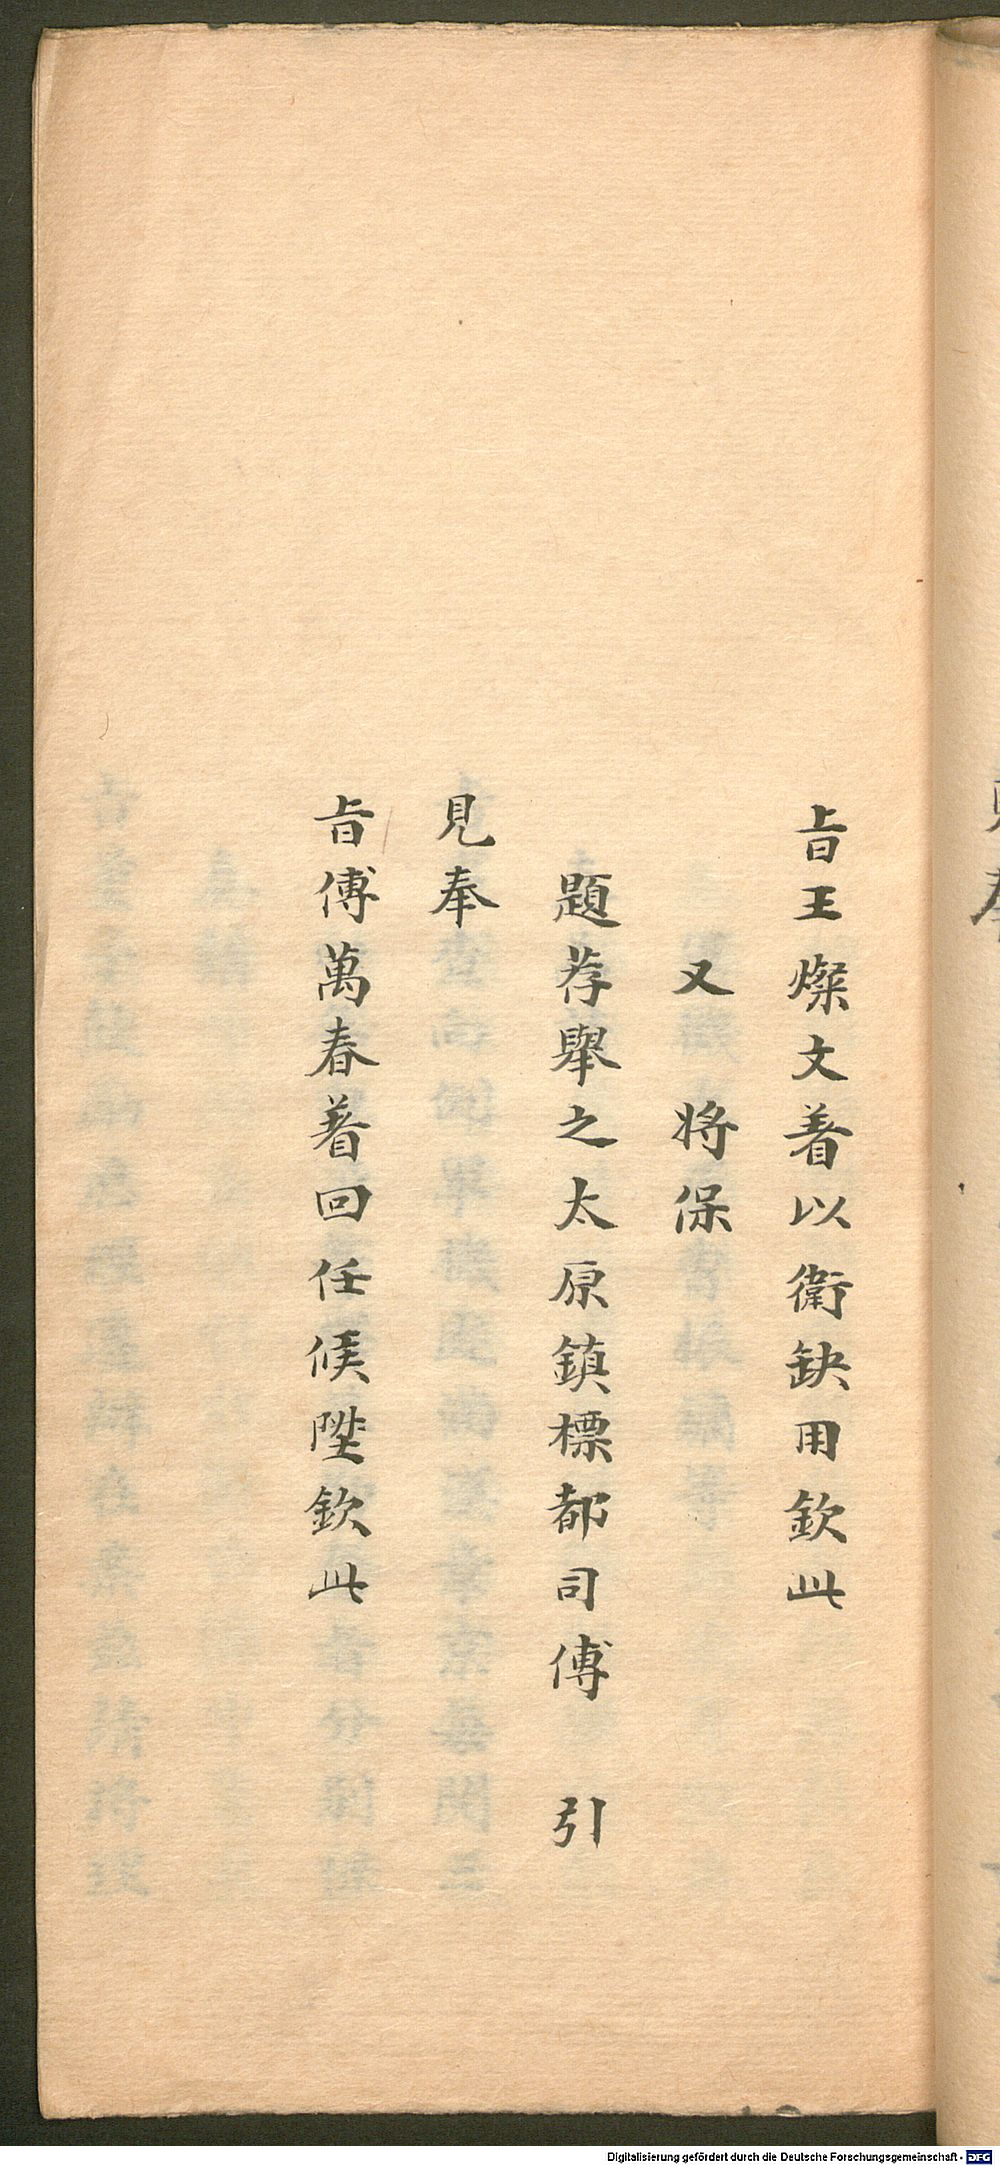 旨王燦文着以衛缺用欽此
又　將保
題荐舉之太原鎮標都司傅　引
見奉
旨傅萬春着回任候陞欽此
Digitalisierung gefördert durch die Deutsche Forschungsgemeinschaft - DFG